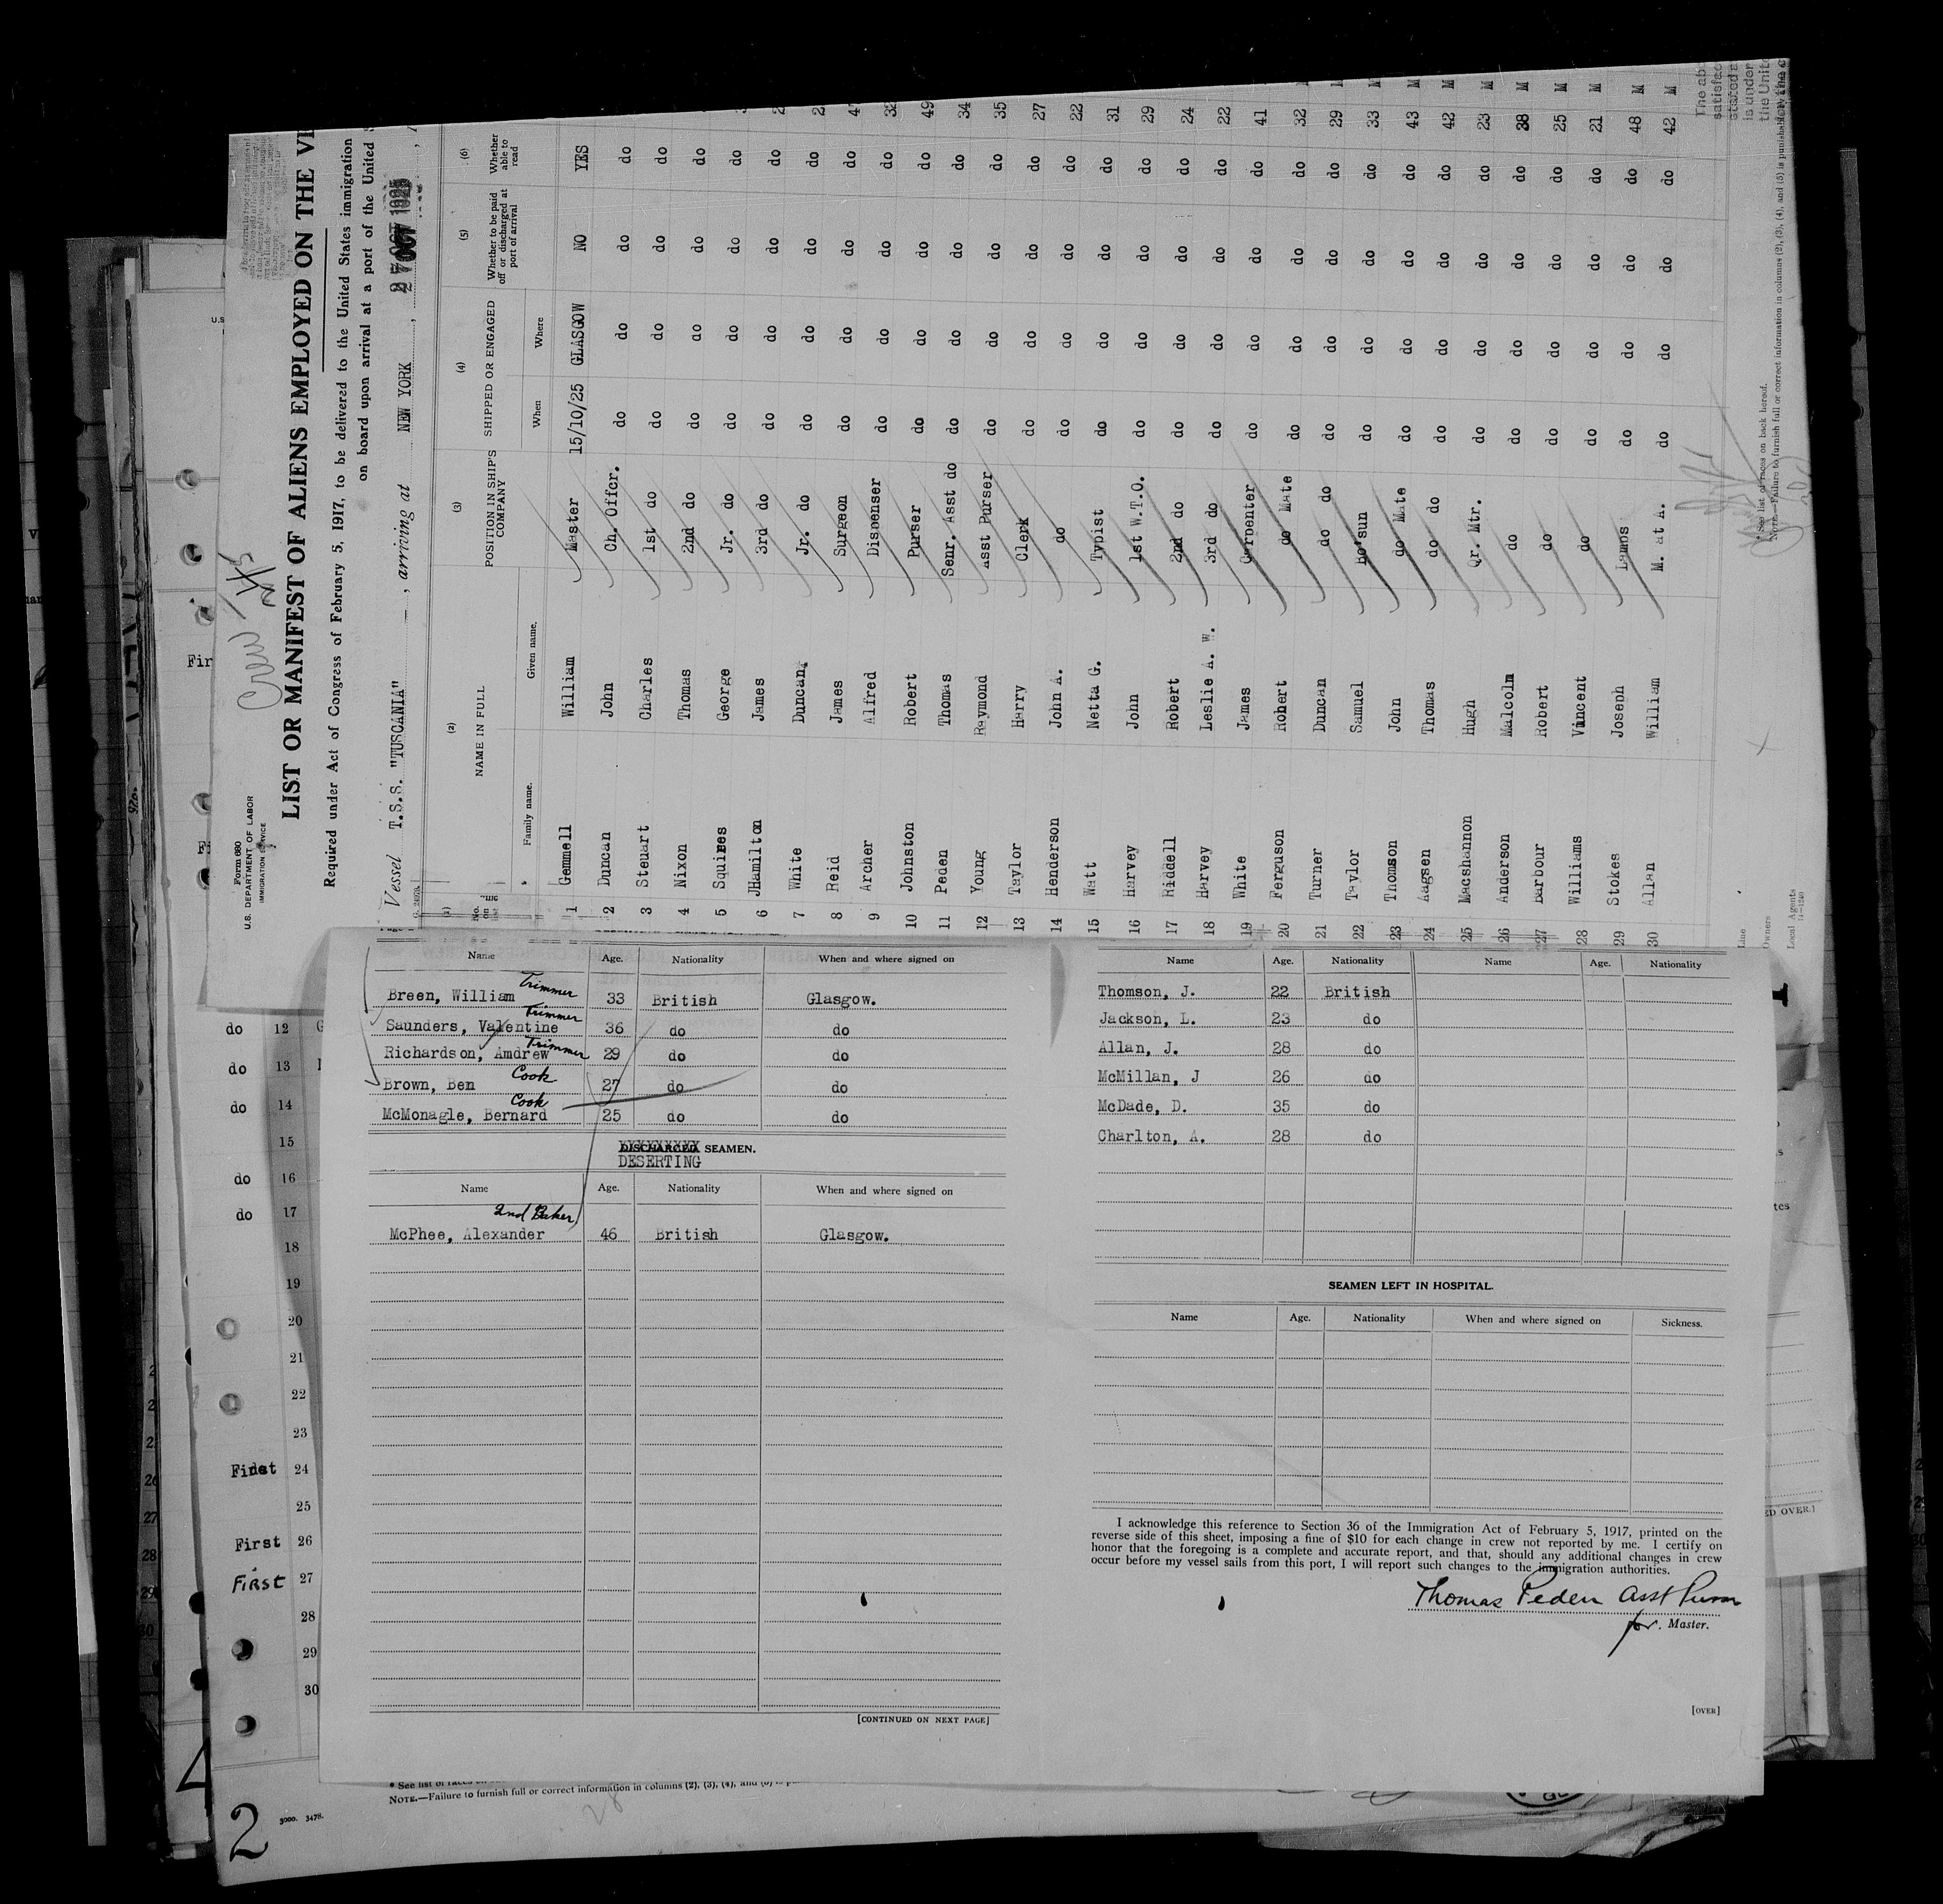 Form 680
U.S. DEPARTMENT OF LABOR
IMMIGRATION SERVICE
Crew
LIST OR MANIFEST OF ALIENS EMPLOYED ON THE
Required under Act of Congress of February 5, 1917, to be delivered to the United States immigration
on board upon arrival at a port of the United
Vessel T.S.S. "TUSCANIA" , arriving at NEW YORK , 27 OCT 1925
(1) (2) (3) (4) (5) (6)
No. on NAME IN FULL POSITION IN SHIP'S COMPANY SHIPPED OR ENGAGED Whether to be paid off or discharged at port of arrival Whether able to read
Family name. Given name. When Where
1 Gemmell William Master 15/10/25 GLASGOW NO YES
2 Duncan John Ch. Offcr. do do do do
3 Steuart Charles 1st do do do do do
4 Nixon Thomas 2nd do do do do do
5 Squires George Jr. do do do do do
6 JHamilton James 3rd do do do do do
7 White Duncan. Jr. do do do do do
8 Reid James Surgeon do do do do 47
9 Archer Alfred Dispenser do do do do 32
10 Johnston Robert Purser do do do do 49
11 Peden Thomas Senr. Asst do do do do do 34
12 Young Raymond Asst Purser do do do do 35
13 Taylor Harry Clerk do do do do 27
14 Henderson John A. do do do do do 22
15 Watt Netta G. Typist do do do do 31
16 Harvey John 1st W.T.O. do do do do 29
17 Riddell Robert 2nd do do do do do 24
18 Harvey Leslie A. W. 3rd do do do do do 22
19 White James Carpenter do do do do 41
20 Ferguson Robert do Mate do do do do 32
21 Turner Duncan do do do do do do 29 M
22 Taylor Samuel Bo'sun do do do do 33 M
23 Thomson John do Mate do do do do 43 M
24 Aagsen Thomas do do do do do do 42 M
25 Macshannon Hugh Qr. Mtr. do do do do 23 M
26 Anderson Malcolm do do do do do 38 M
27 Barbour Robert do do do do do 25 M
28 Williams Vincent do do do do do 21 M
29 Stokes Joseph Lamps do do do do 48 M
30 Allan William M. at A. do do do do 42 M
Line
Owners
Local Agents
* See list of races on back hereof.
NOTE.—Failure to furnish full or correct information in columns (2), (3), (4), and (5) is punishable
The ab
satisfac
stated a
is under
the Unite
Name Age. Nationality When and where signed on
Breen, William Trimmer 33 British Glasgow.
Saunders, Valentine Trimmer 36 do do
Richardson, Amdrew Trimmer 29 do do
Brown, Ben Cook 27 do do
McMonagle, Bernard Cook 25 do do
DISCHARGED SEAMEN.
DESERTING
Name Age. Nationality When and where signed on
McPhee, Alexander 2nd Baker 46 British Glasgow.
[CONTINUED ON NEXT PAGE]
Name Age. Nationality Name Age. Nationality
Thomson, J. 22 British
Jackson, L. 23 do
Allan, J. 28 do
McMillan, J 26 do
McDade, D. 35 do
Charlton, A. 28 do
SEAMEN LEFT IN HOSPITAL.
Name Age. Nationality When and where signed on Sickness.
I acknowledge this reference to Section 36 of the Immigration Act of February 5, 1917, printed on the
reverse side of this sheet, imposing a fine of $10 for each change in crew not reported by me. I certify on
honor that the foregoing is a complete and accurate report, and that, should any additional changes in crew
occur before my vessel sails from this port, I will report such changes to the immigration authorities.
Thomas Peden Asst Purser
for. Master.
[OVER]
do 12
do 13
do 14
15
do 16
do 17
18
19
20
21
22
23
24
25
First 26
FIRST 27
28
29
30
* See list of races on
NOTE.—Failure to furnish full or correct information in columns (2), (3), (4), and
2
3000. 3478.
28
ED OVER.]